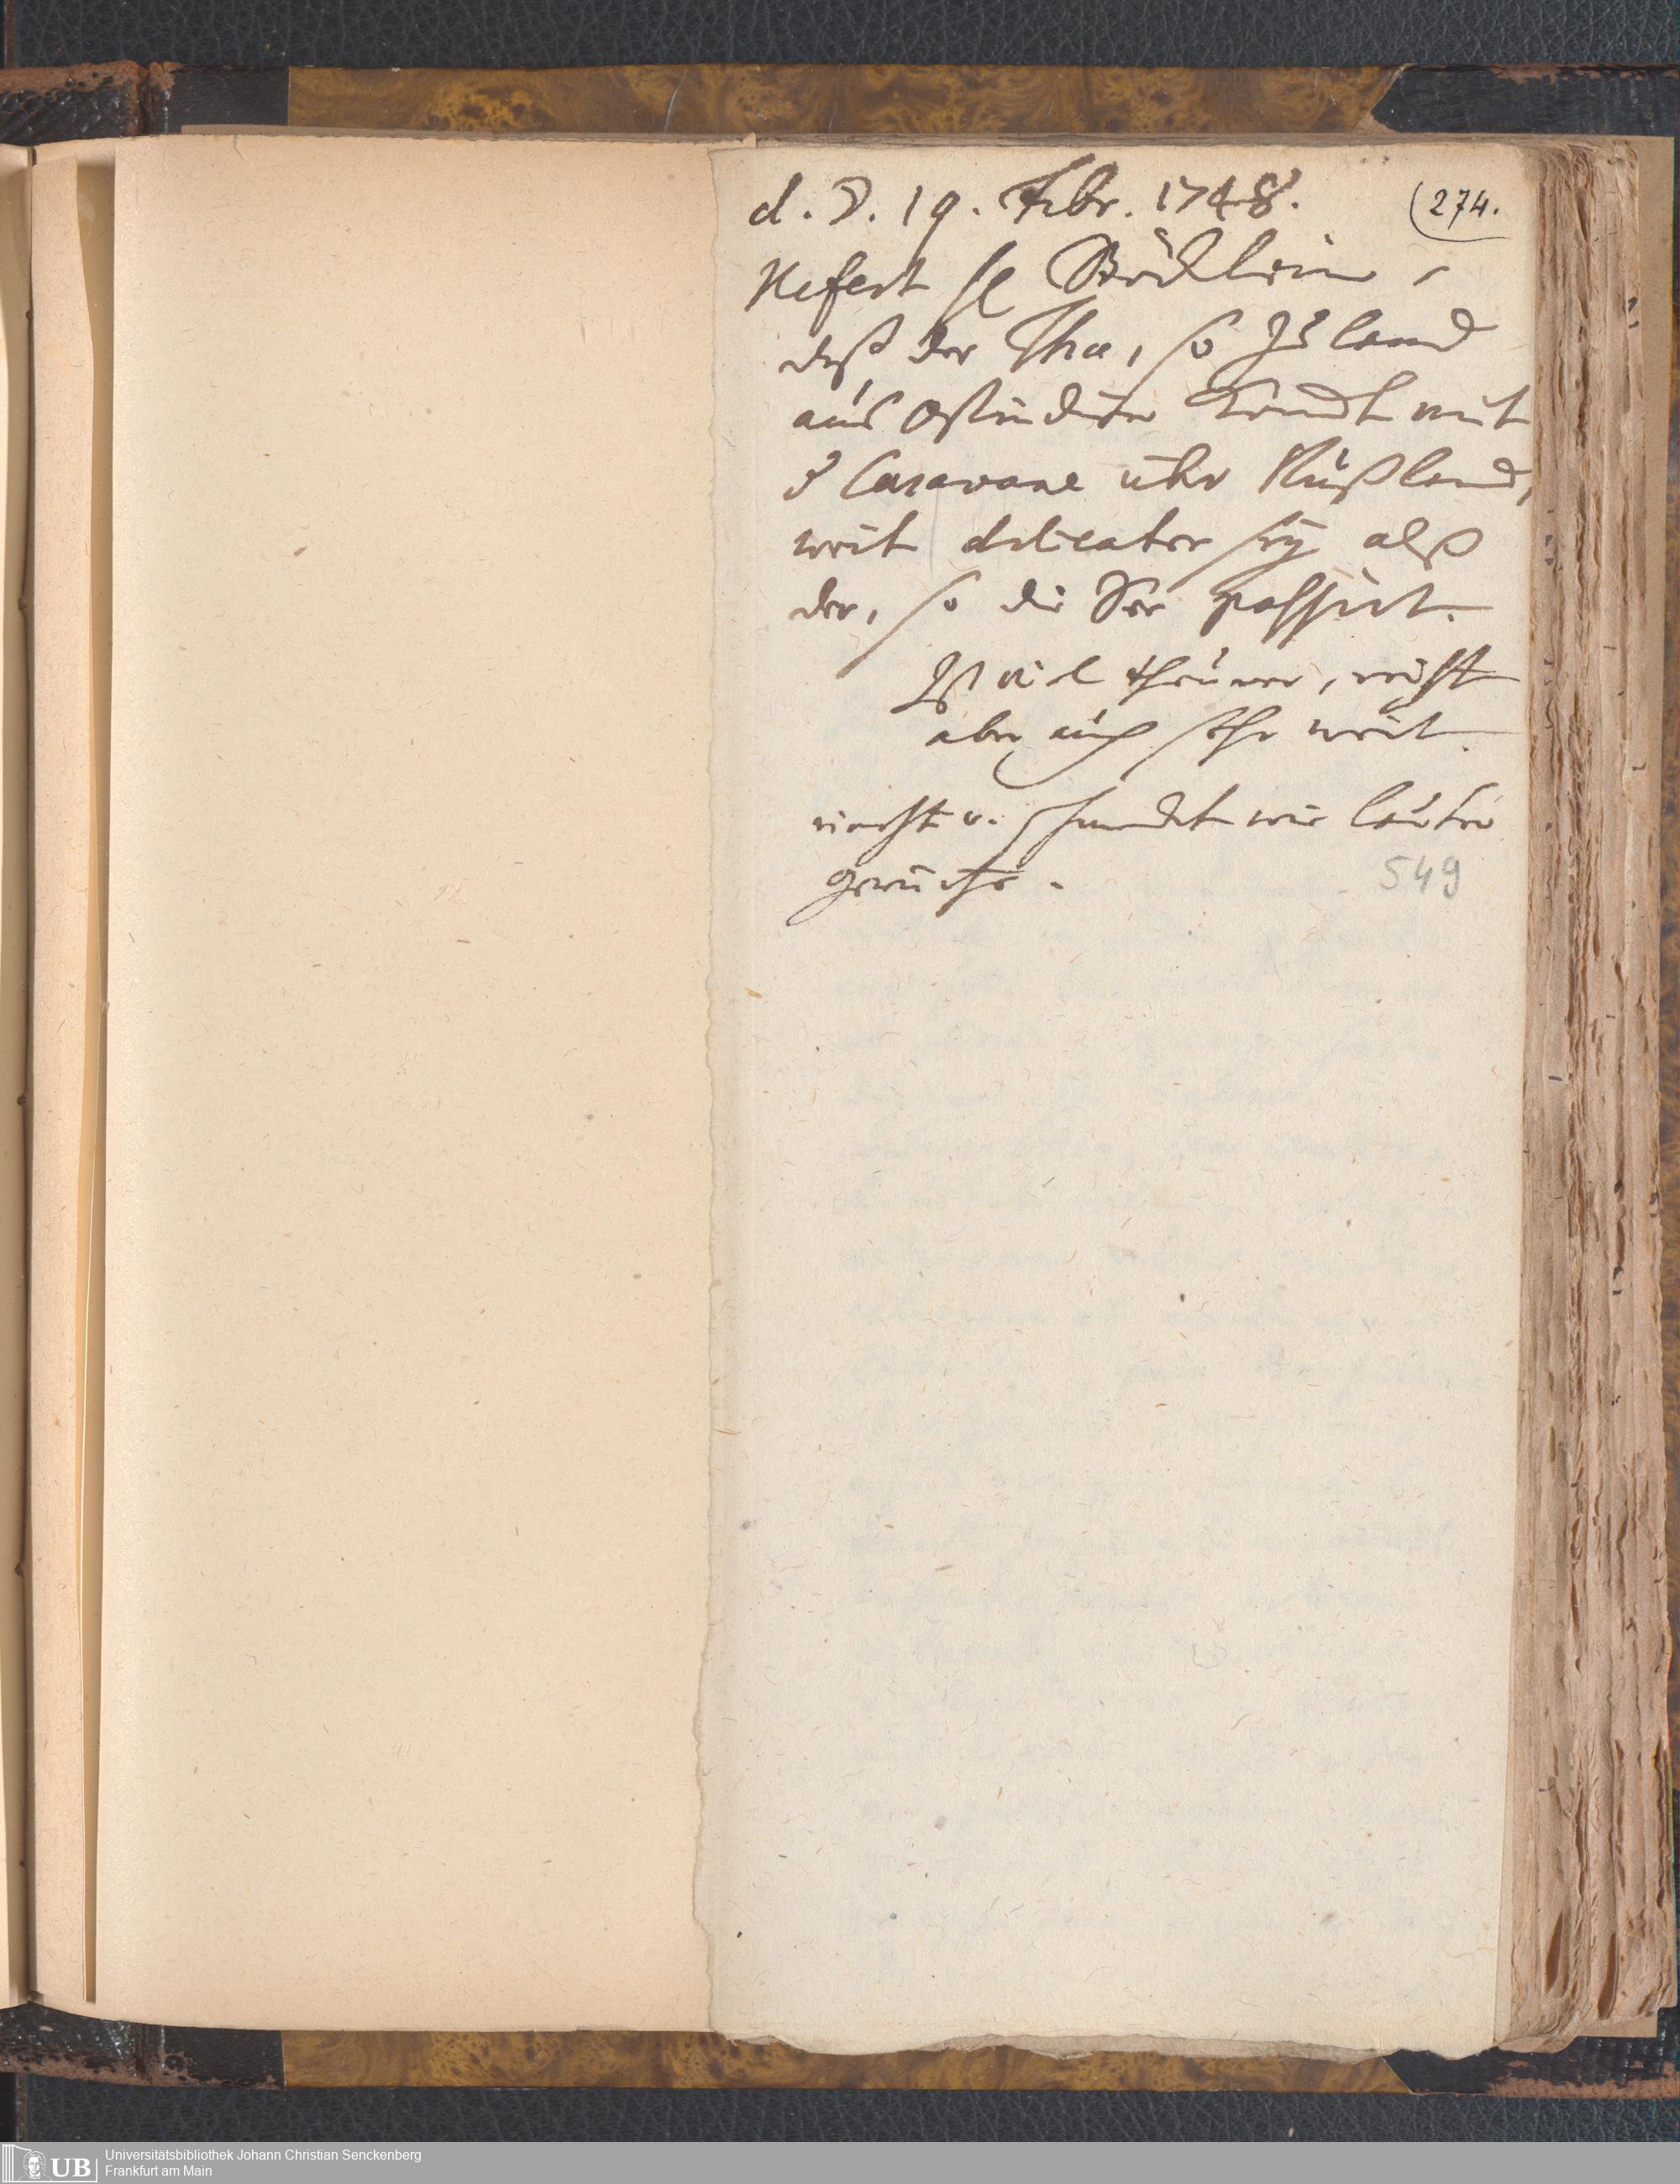 d. 19. Febr. 1748.
(274.
Refert H Böcklein,
daß der Thee, so zu land
aus Ostindien kombt mit
d Caravane über Rußland,
weit delicater sey alß
der, so die See passirt.
Ist viel theurer, reicht
aber auch sehr weit.
riecht u. schmeckt wie lauter
gerüche.
549
UB
Universitätsbibliothek Johann Christian Senckenberg
Frankfurt am Main